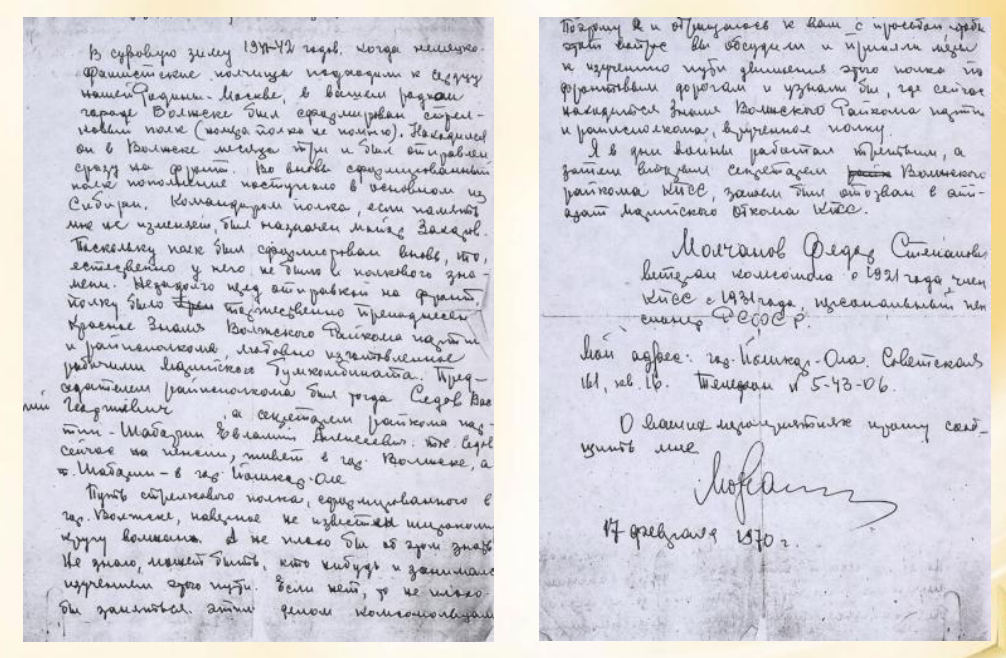 В суровую зиму 1941-42 годов, когда немецко-
фашистские полчища подходили к сердцу
нашей Родины - Москве, в вашем родном
городе Волжске был сформирован стрел-
ковый полк (номера полка не помню). Находился
он в Волжске месяца три и был отправлен
сразу на фронт. Во вновь сформированный
полк пополнение поступало в основном из
Сибири. Командиром полка, если память
мне не изменяет, был назначен майор Захаров.
Поскольку полк был сформирован вновь, то,
естественно у него не было и полкового зна-
мени. Незадолго перед отправкой на фронт,
полку было торжественно преподнесен
Красное Знамя Волжского Райкома партии
и райисполкома, любовно изготовленное
рабочими Марийского бумкомбината. Пред-
седателем райисполкома был тогда Седов Вас
илий Георгиевич, а секретарем райкома пар-
тии - Шабалин Евлампий Алексеевич. тов. Седов
сейчас на пенсии, живет в гор. Волжске, а
т. Шабалин - в гор. Йошкар-Оле
Путь стрелкового полка, сформированного в
гор. Волжске, наверное не известен широкому
кругу волжан. А не плохо бы об этом знать
Не знаю, может быть, кто нибудь и занимался
изучением этого пути. Если нет, то не плохо
бы заняться этим делом комсомольцам
Поэтому я и обращаюсь к вам с просьбой чтобы
этот вопрос вы обсудили и приняли меры
к изучению пути движения этого полка по
фронтовым дорогам и узнали бы, где сейчас
находиться Знамя Волжского Райкома партии
и райисполкома, врученное полку.
Я в дни войны работал третьим, а
затем вторым секретарем Волжского
райкома КПСС, затем был отозван в апп-
арат Марийского Обкома КПСС.
Молчанов Федор Степанович
ветеран комсомола с 1921 года, член
КПСС с 1931 года, персональный пен
сионер РСФСР.
Мой адрес: гор. Йошкар-Ола. Советская
161, кв. 16. Телефон № 5-43-06.
О ваших мероприятиях прошу сооб-
щить мне
17 февраля 1970 г.